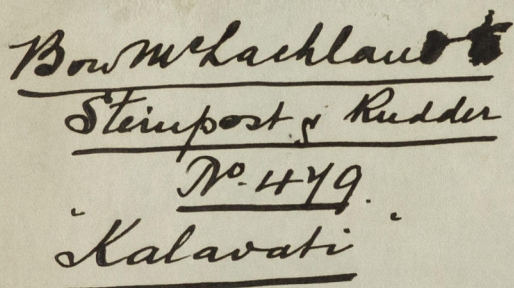 Bow McLachlan
Sternpost & Rudder
No. 479.
"Kalavati"